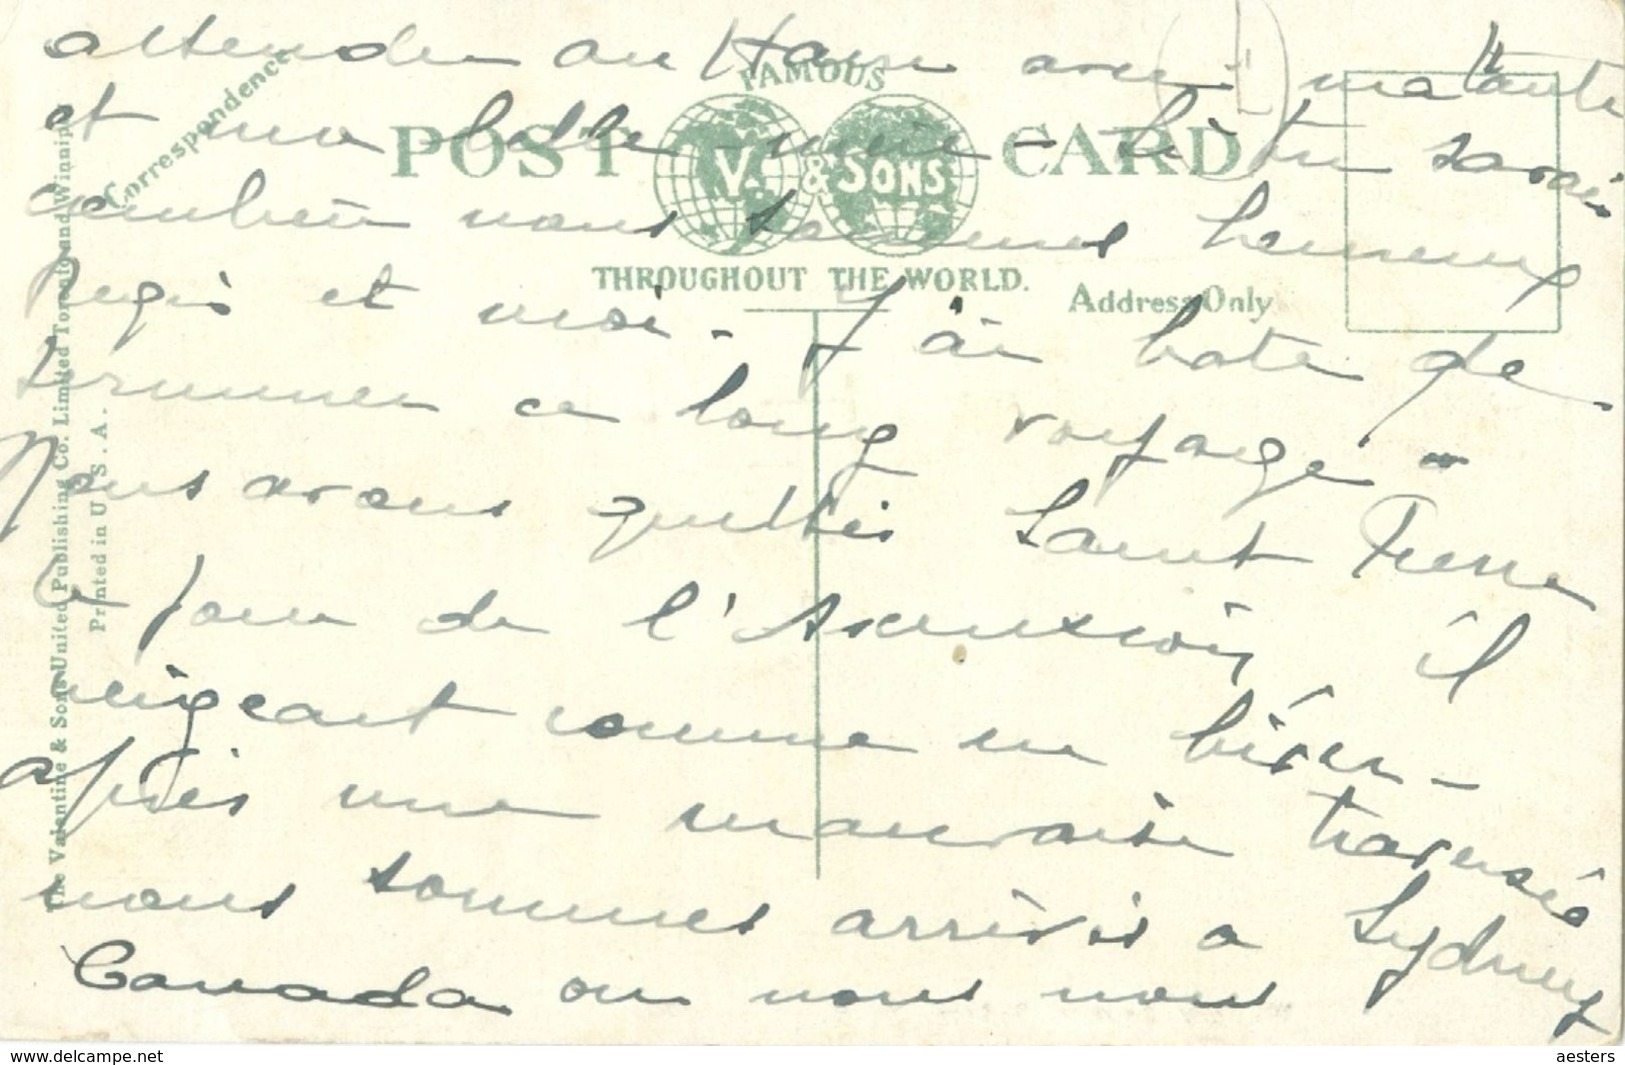 attendre au Havre avec ma tante
et ma belle-mère - Si tu savais
combien nous sommes heureux
Regis et moi. J'ai hate de
terminer ce long voyage.
Nous avons quittés Saint Pierre
le jour de l'Ascension il
neigeant comme un hiver -
après une mauvaise traversée
nous sommes arrivés a Sydney
Canada ou nous nous
Correspondence
FAMOUS
POST CARD
V. & SONS
THROUGHOUT THE WORLD.
Address Only
The Valentine & Sons United Publishing Co. Limited Toronto and Winnipeg
Printed in U.S.A.
delcampe.net
aesters